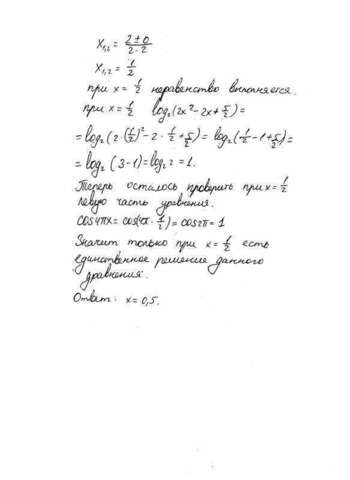 x₁,₂ = (2±0)/(2·2)
x₁,₂ = 1/2
при x = 1/2 неравенство выполняется.
при x = 1/2 log₂(2x² - 2x + 5/2) =
= log₂(2·(1/2)² - 2·1/2 + 5/2) = log₂(1/2 - 1 + 5/2) =
= log₂(3-1) = log₂2 = 1.
Теперь осталось проверить при x = 1/2
левую часть уравнения.
cos4πx = cos(4π·1/2) = cos2π = 1
Значит только при x = 1/2 есть
единственное решение данного
уравнения.
Ответ: x = 0,5.